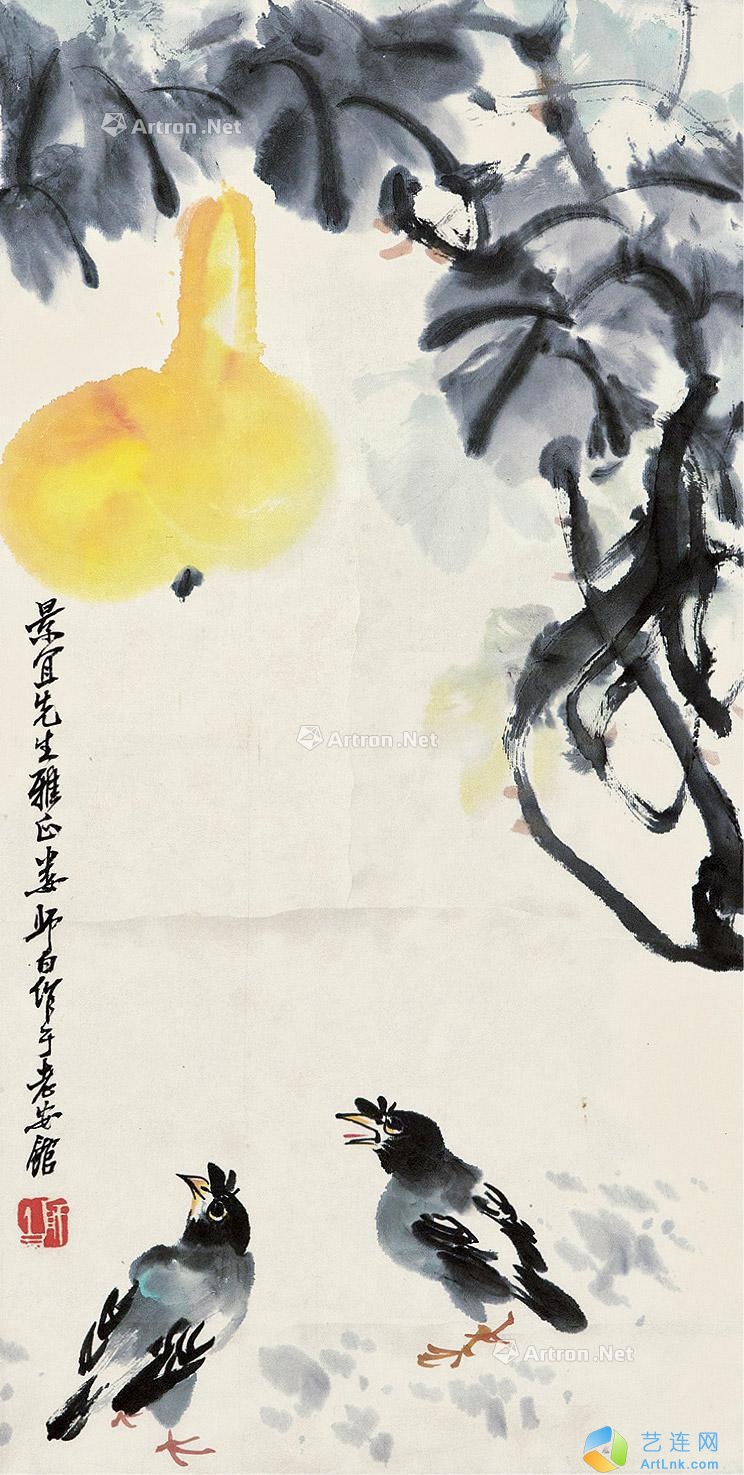 Artron.Net
景宜先生雅正娄师白作于老安馆
Artron.Net
Artron.Net
艺连网
ArtLnk.com